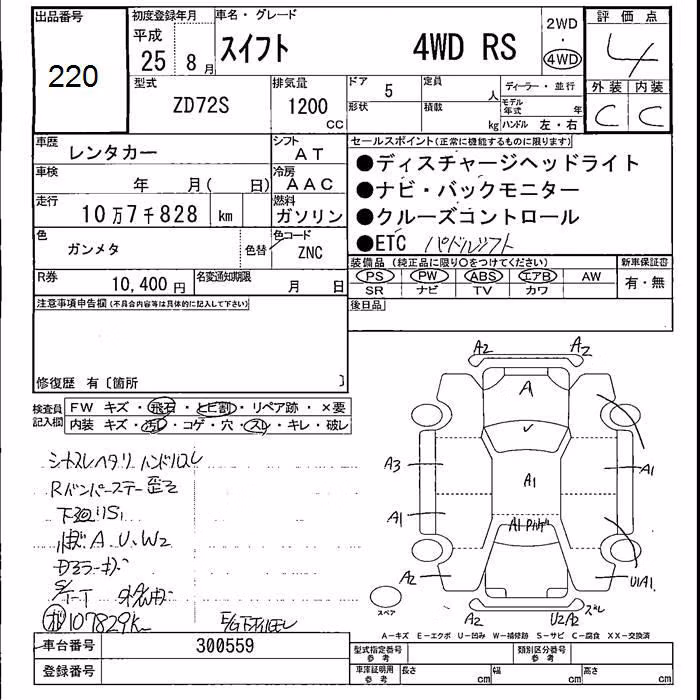 出品番号
220
初度登録年月
平成
25年 8月
車名・グレード
スイフト 4WD RS
2WD
・
4WD
評価点
4
型式
ZD72S
排気量
1200
CC
ドア
5
形状
定員
人
積載
kg
ディーラー・並行
モデル年式 年
ハンドル 左・右
外装 内装
C C
車歴
レンタカー
シフト
AT
車検
年 月( 日)
冷房
AAC
走行
10万7千828 km
燃料
ガソリン
色
ガンメタ
色替
色コード
ZNC
R券
10,400円
名変通知期限
月 日
セールスポイント(正常に機能するものに限ります)
●ディスチャージヘッドライト
●ナビ・バックモニター
●クルーズコントロール
●ETC パドルシフト
装備品 (純正品に限り○をつけてください)
PS PW ABS エアB AW
SR ナビ TV カワ
新車保証書
有・無
注意事項申告欄(不具合内容等は具体的に記入して下さい)
後日品
修復歴 有〔箇所 〕
検査員記入欄
FW キズ・飛石・トビ割・リペア跡・×要
内装 キズ・汚レ・コゲ・穴・スレ・キレ・破レ
シートスレヘタリ ハンドルスレ
Rバンパーステー歪ミ
下廻りS1
A、U、W2
107829K
A2 A2
A
A3
A1
A1
A1
A1
A2
U1A1
A2
U2A2 ズレ
スペア
A-キズ E-エクボ U-凹み W-補修跡 S-サビ C-腐食 XX-交換済
車台番号
300559
登録番号
型式指定番号
参考
類別区分番号
参考
車庫証明用
参考
長さ cm
幅 cm
高さ cm